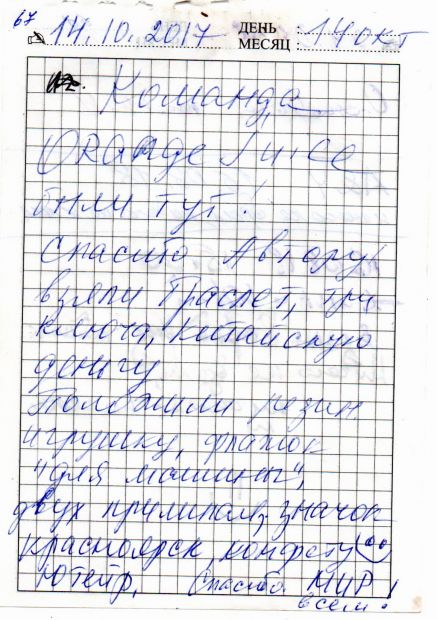 67
14.10.2017 ДЕНЬ МЕСЯЦ : 14 окт
Команда
ORANGE Juice
были тут!
Спасибо Автору
взяли браслет, три
ключа, китайскую
деньгу
Положили резин
игрушку, флажок
"для машины",
двух прилипал, значок
Красноярск, конфету
Спасибо. МИР
всем!